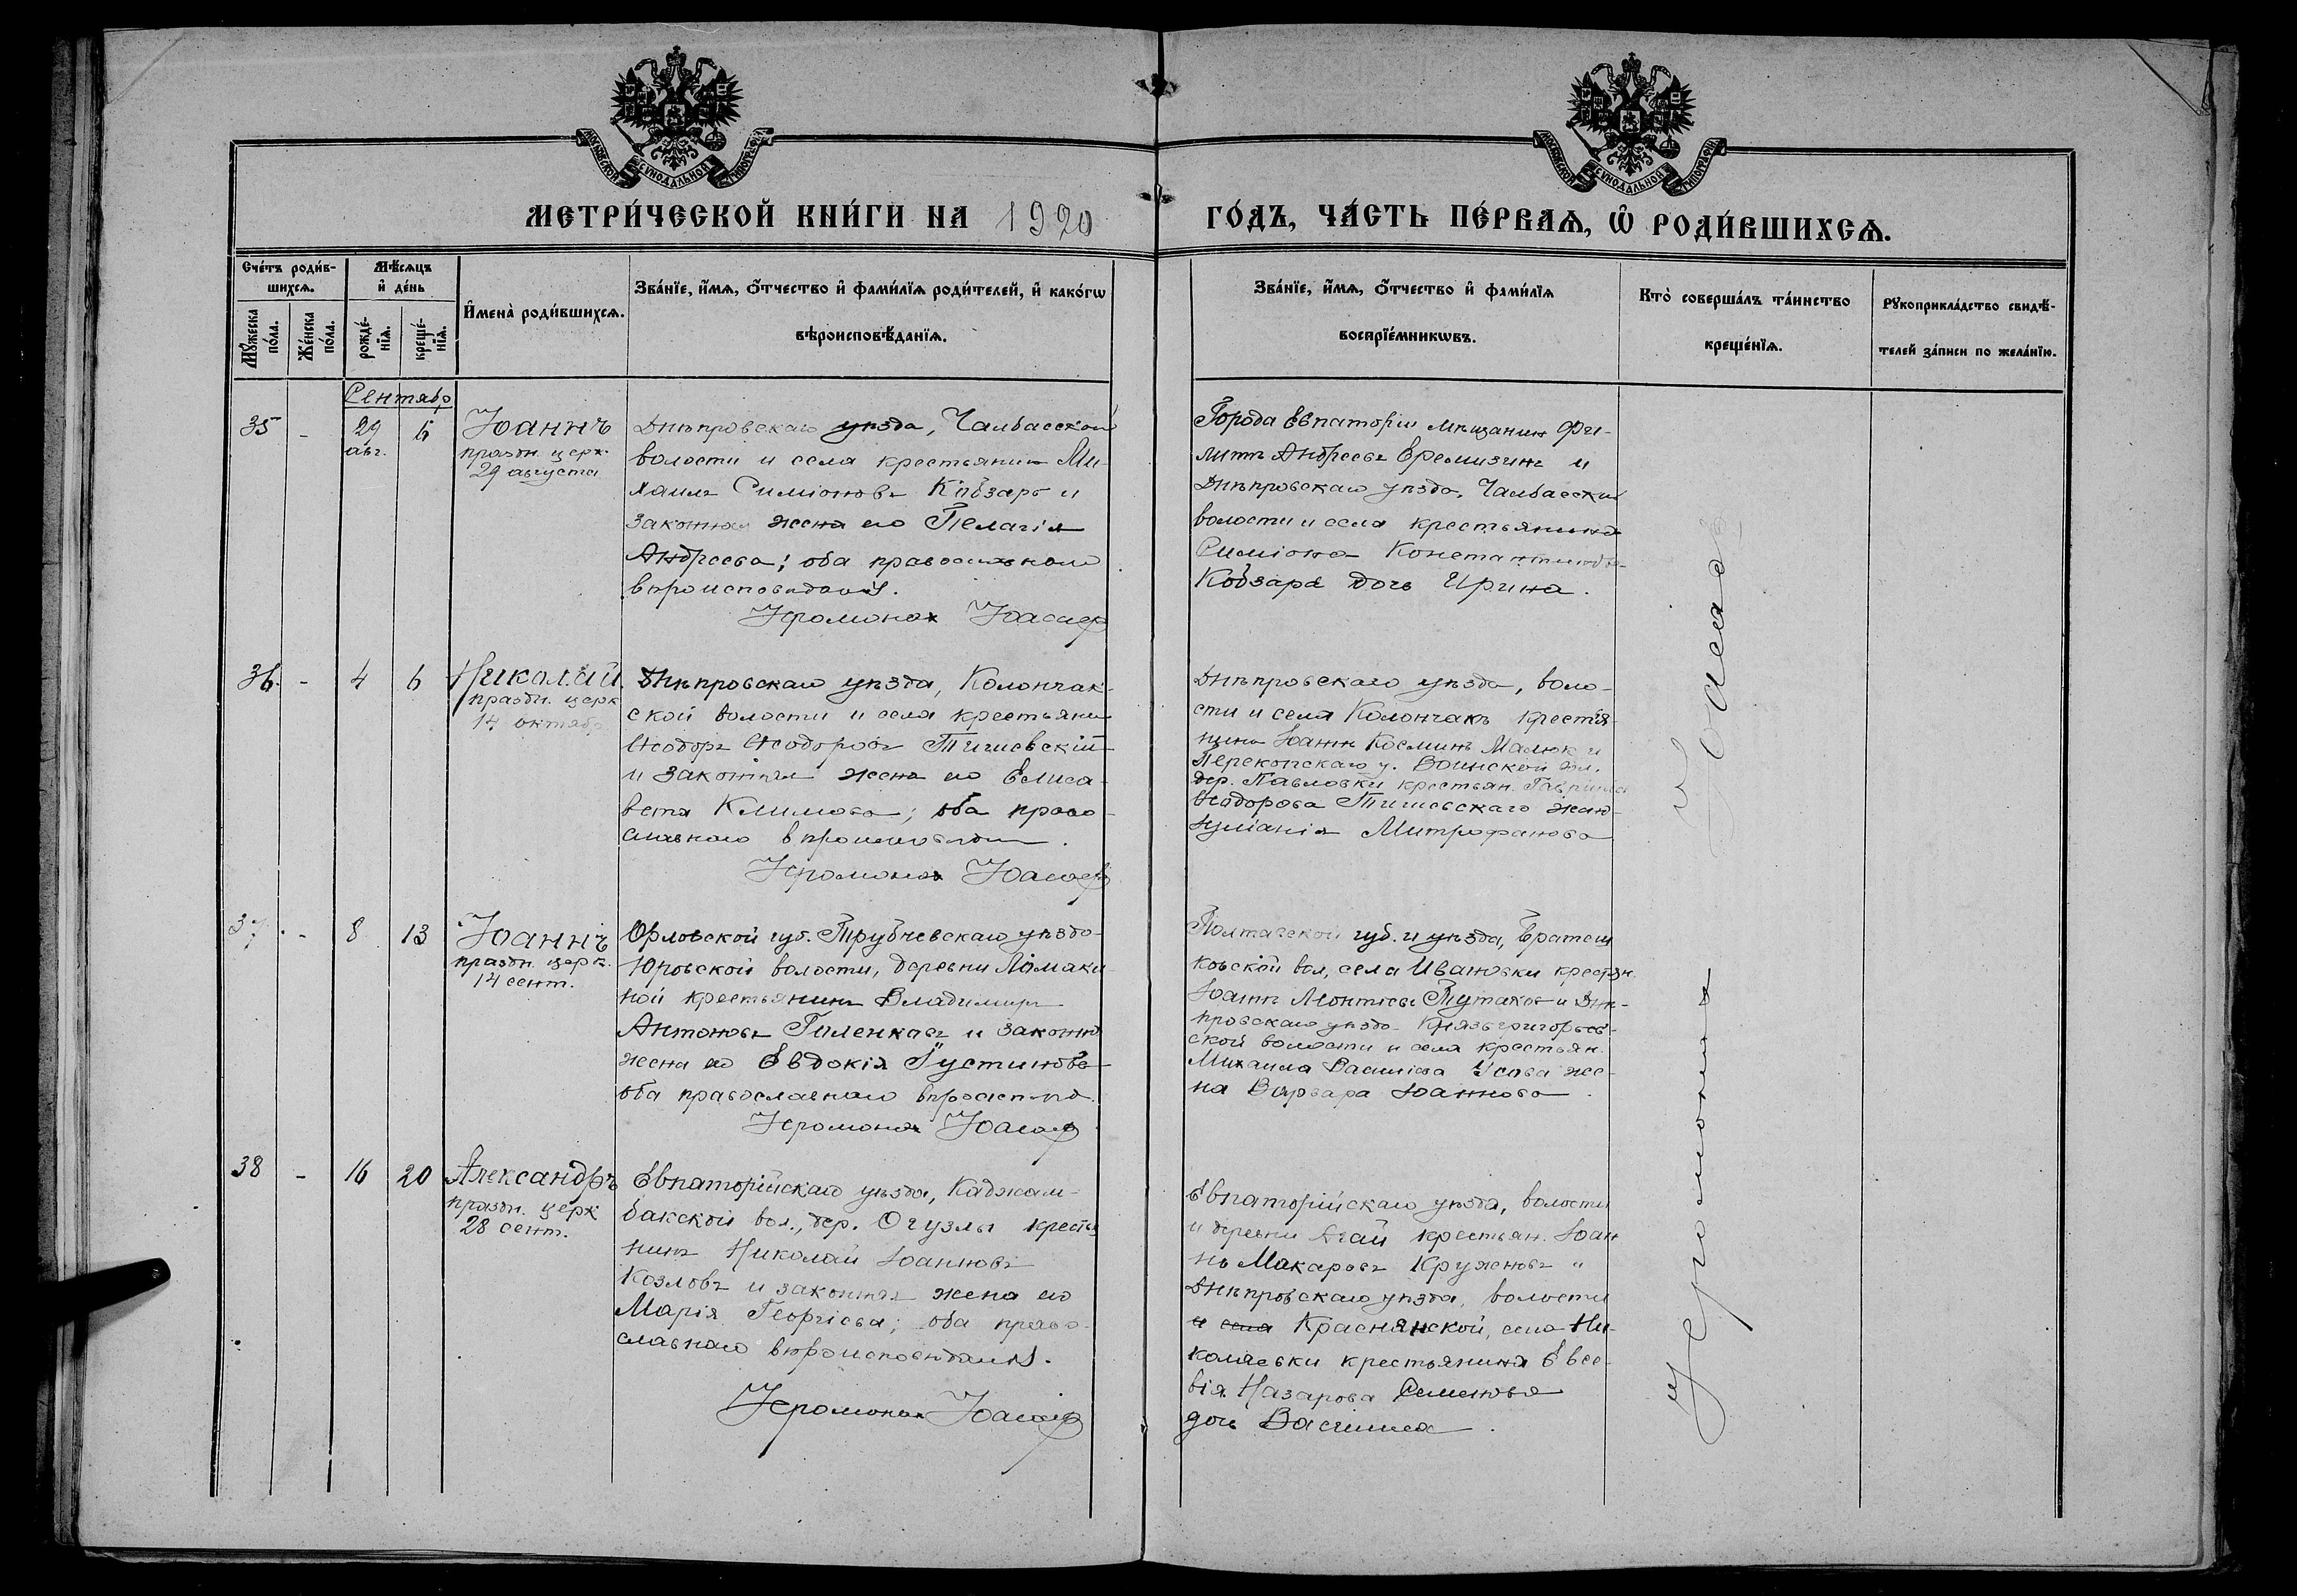 МОСКОВСКОЙ СѴНОДАЛЬНОЙ ТИПОГРАФІИ
МОСКОВСКОЙ СѴНОДАЛЬНОЙ ТИПОГРАФІИ
МЕТРИ́ЧЕСКОЙ КНИ́ГИ НА 1920
ГО́ДЪ, ЧА́СТЬ ПЕ́РВАѦ, Ѡ҆ РОДИ́ВШИХСѦ.
Сче́тъ роди́в-
шихсѧ.
Мѣ́сѧцъ
и҆ де́нь
Мꙋ́жеска
по́ла.
Же́нска
по́ла.
рожде́-
нїѧ.
креще́-
нїѧ.
И҆мена̀ роди́вшихсѧ.
Зва́нїе, и҆́мѧ, ѻ҆́тчество и҆ фами́лїѧ роди́телей, и҆ како́гѡ
вѣроисповѣ́данїѧ.
Зва́нїе, и҆́мѧ, ѻ҆́тчество и҆ фами́лїѧ
воспрїе́мникѡвъ.
Кто̀ соверша́лъ та́инство
креще́нїѧ.
Рꙋкоприкла́дство свидѣ́-
телей за́писи по жела́нїю.
Сентябр
35 - 29 6 Іоаннъ
авг.
праздн. церк.
29 августа
Днѣпровскаго уѣзда, Чалбасской
волости и села крестьянин Ми-
хаилъ Симіоновъ Кобзарь и
законная жена его Пелагія
Андреева; оба православнаго
вѣроисповѣданія.
Іеромонах Іоасаф
Города Евпаторіи мѣщанин Фи-
липпъ Андреевъ Еремизинъ и
Днѣпровскаго уѣзда, Чалбасской
волости и села крестьянина
Симіона Константинова
Кобзаря дочь Ирина.
36. - 4 6 Николай
праздн. церк
14 октябр
Днѣпровскаго уѣзда, Колончак-
ской волости и села крестьянин
Ѳеодоръ Ѳеодоровъ Тигиевскій
и законная жена его Елиса-
вета Климова; оба право-
славнаго вѣроисповѣдан.
Іеромонах Іоасаф
Днѣпровскаго уѣзда, воло-
сти и села Колончакъ крестья-
нинъ Іоанн Косминъ Малюк и
Перекопскаго у. Воинской вол.
дер. Павловки крестьян. Гавриила
Ѳеодорова Тигиевскаго жена
Іуліанія Митрофанова
37. - 8 13 Іоаннъ
праздн. церк.
14 сент.
Орловской губ. Трубчевскаго уѣзда
Юровской волости, деревни Ломаки-
ной крестьянинъ Владимиръ
Антоновъ Голенковъ и законная
жена его Евдокія Іустинова
оба православнаго вѣроиспов.
Іеромонах Іоасаф
Полтавской губ. и уѣзда, Братеш-
ковской вол, села Ивановки крестьян.
Іоанн Леонтіевъ Тутаковъ и Днѣ-
провскаго уѣзда Князьгригорьев-
ской волости и села крестьян.
Михаила Василіева Усова же-
на Варвара Іоаннова.
38 - 16 20 Александръ
праздн. церк
28 сент.
Евпаторійскаго уѣзда, Каджам-
бакской вол., дер. Огузлы крестья-
нинъ Николай Іоанновъ
Козловъ и законная жена его
Марія Георгіева; оба право-
славнаго вѣроисповѣданія.
Іеромонах Іоасаф
Евпаторійскаго уѣзда, волости
и деревни Агай крестьян. Іоан-
нъ Макаровъ Круженовъ и
Днѣпровскаго уѣзда, волости
и села Краснянской, села Ни-
колаевки крестьянина Евсе-
вія Назарова Семенова
дочь Василиса.
Іеромонах Іоасаф